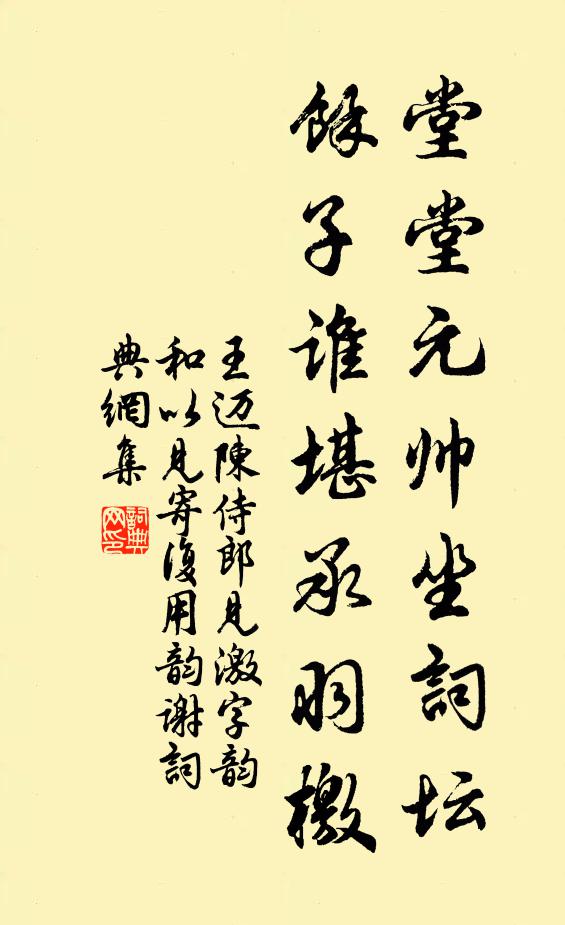 堂堂元帅坐詞坛
餘子誰堪承羽檄
王迈陳侍郎見激字韵
和以見寄復用韵谢詞
典網集
詞典网印